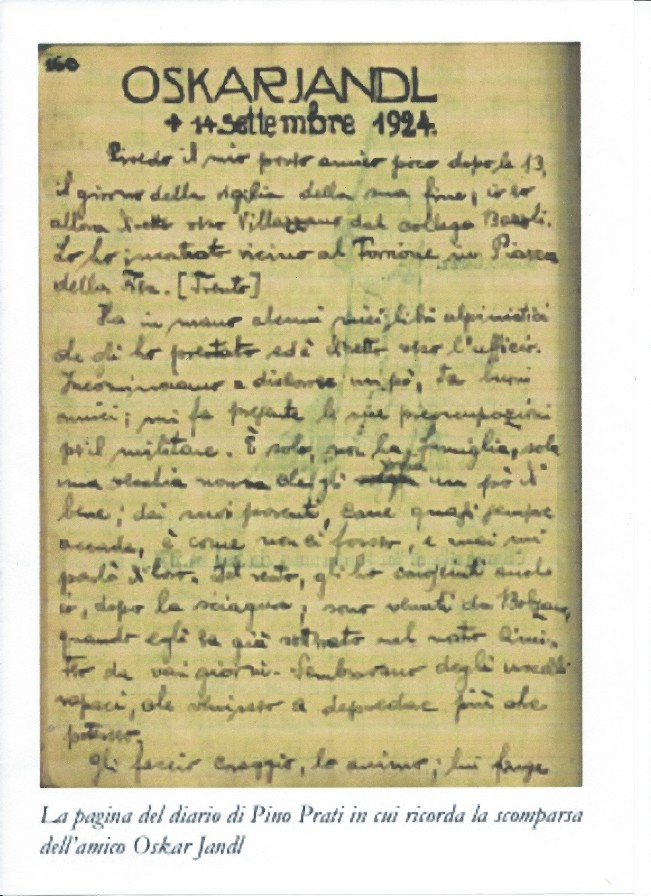 160
OSKAR JANDL
+ 14 settembre 1924.
Rivedo il mio povero amico poco dopo le 13,
il giorno della vigilia della sua fine; io ero
allora diretto verso Villazzano dal collega Bozoli.
Lo ho incontrato vicino al Torrione, in Piazza
della Fiera. [Trento]
Ha in mano alcuni miei libri alpinistici
che gli ho prestato ed è diretto verso l'ufficio.
Incominciamo a discorrere un pò, da buoni
amici; mi fa presente le sue preoccupazioni
pel militare. È solo, non ha famiglia, sola
una vecchia nonna che gli un pò di
bene; dei suoi parenti, come quasi sempre
accade, è come non ci fossero, e mai mi
parlò di loro. Del resto, gli ho conosciuti anche
io, dopo la sciagura; sono venuti da Bolzano,
quando egli era già sotterrato nel nostro cimi-
tero da vari giorni. Sembravano degli uccelli
rapaci, che venissero a depredare più che
potessero.
Gli faccio coraggio, lo animo; lui
La pagina del diario di Pino Prati in cui ricorda la scomparsa
dell'amico Oskar Jandl